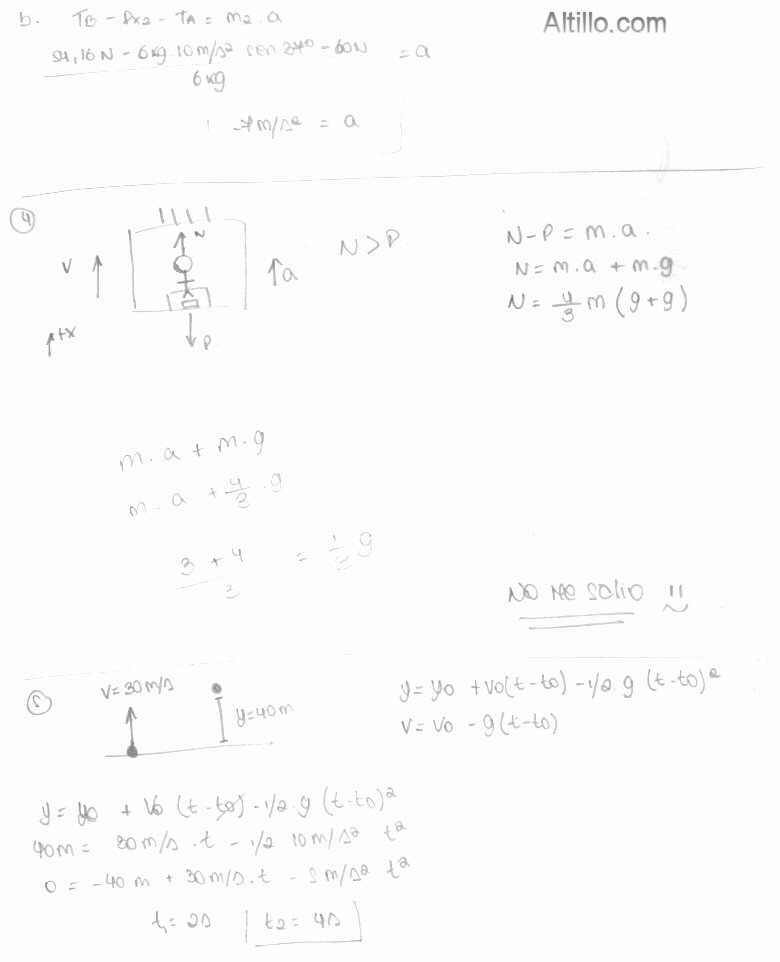 b. TB - Px2 - TA = m2 . a
Altillo.com
54,16N - 6kg 10m/s² sen 240 - 60N = a
6kg
-7m/s² = a
4
N
N > P
V
a
+x
P
N - P = m . a .
N = m . a + m . g
N = 4/3 m (g + g)
m . a + m . g
m . a + 4/3 . g
3 + 4
3
NO ME SALIO
5
V = 30m/s
y = 40m
y = y0 + v0 (t - t0) - 1/2 g (t - t0)²
V = V0 - g (t - t0)
y = y0 + V0 (t - t0) - 1/2 . g (t - t0)²
40m = 30m/s . t - 1/2 10m/s² t²
0 = -40m + 30m/s . t - 5m/s² t²
t1 = 2s t2 = 4s